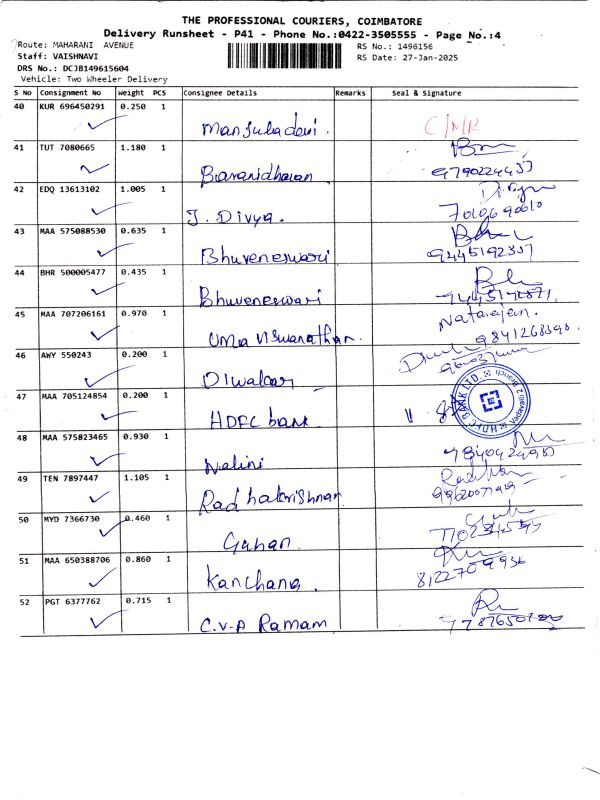 THE PROFESSIONAL COURIERS, COIMBATORE
Delivery Runsheet - P41 - Phone No.:0422-3505555 - Page No.:4
Route: MAHARANI AVENUE
RS No.: 1496156
Staff: VAISHNAVI
RS Date: 27-Jan-2025
DRS No.: DCJB149615604
Vehicle: Two Wheeler Delivery
S No Consignment No Weight PCS Consignee Details Remarks Seal & Signature
40 KUR 696450291 0.250 1
Manjuladevi. C/MR
41 TUT 7080665 1.180 1
Bavanidharan 9790224437
42 EDQ 13613102 1.005 1
J. Divya.
43 MAA 575088530 0.635 1
Bhuveneswari 9445192357
44 BHR 500005477 0.435 1
Bhuveneswari
45 MAA 707206161 0.970 1 Natarajan.
Uma Viswanathan.
46 AWY 550243 0.200 1
Diwakar
47 MAA 705124854 0.200 1
HDFC bank HDFC BANK LTD. Vadavalli 2 Branch
48 MAA 575823465 0.930 1
Nalini
49 TEN 7897447 1.105 1
Radhakrishnan
50 MYD 7366730 0.460 1
Gahan.
51 MAA 650388706 0.860 1
Kanchana. 8122709936
52 PGT 6377762 0.715 1
C.V.P Ramam